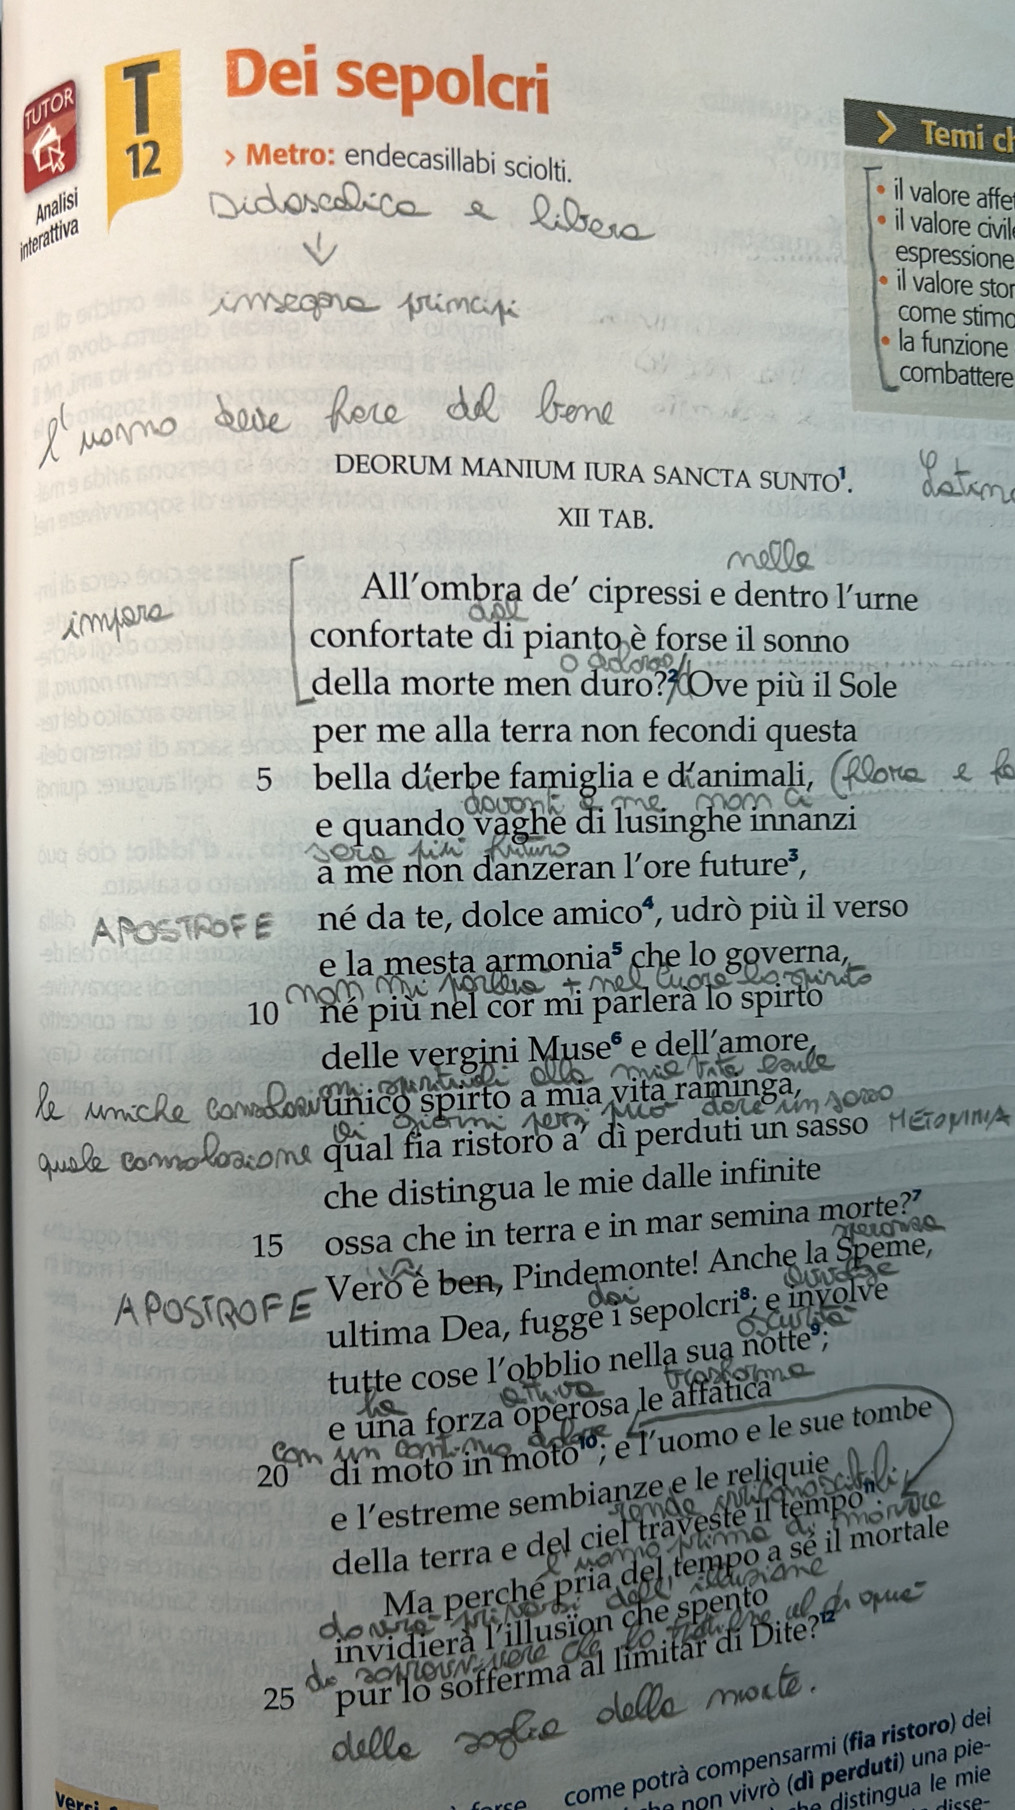 Dei sepolcri
TUTOR
T
12
Analisi
interattiva
> Metro: endecasillabi sciolti.
Didascalica e libera
↓
insegna principi
> Temi ch
• il valore affet
• il valore civile
espressione
• il valore stor
come stimo
• la funzione
combattere
l'uomo deve fare del bene
DEORUM MANIUM IURA SANCTA SUNTO¹.
XII TAB.
latino
nelle
All'ombra de' cipressi e dentro l'urne
impera
dal
confortate di pianto è forse il sonno
della morte men duro?² Ove più il Sole
per me alla terra non fecondi questa
5 bella d'erbe famiglia e d'animali, (flora e fa
davanti a me non ci
e quando vaghe di lusinghe innanzi
sarà più futuro
a me non danzeran l'ore future³,
APOSTROFE né da te, dolce amico⁴, udrò più il verso
e la mesta armonia⁵ che lo governa,
non mi parlerà + nel cuore lo spirito
10 né più nel cor mi parlerà lo spirto
delle vergini Muse⁶ e dell'amore,
alla mia vita esule
le uniche unico spirto a mia vita raminga,
giorni persi può dare un sasso
quale consolazione qual fia ristoro a' dì perduti un sasso METONIMIA
che distingua le mie dalle infinite
15 ossa che in terra e in mar semina morte?⁷
speranza
Vero è ben, Pindemonte! Anche la Speme,
APOSTROFE
dai avvolge
ultima Dea, fugge i sepolcri⁸; e involve
oscurità
tutte cose l'obblio nella sua notte⁹;
attiva trasforma
e una forza operosa le affatica
con un continuo
20 di moto in moto¹⁰; e l'uomo e le sue tombe
e l'estreme sembianze e le reliquie
rende irriconoscibili
della terra e del ciel traveste il tempo¹¹.
l'uomo prima di morire
Ma perché pria del tempo a sé il mortale
dovrà privarsi dell'illusione
invidierà l'illusïon che spento
di sopravvivere che lo trattiene al di qua
25 pur lo sofferma al limitar di Dite?¹²
della soglia della morte.
come potrà compensarmi (fia ristoro) dei
non vivrò (dì perduti) una pie-
distingua le mie
disse-